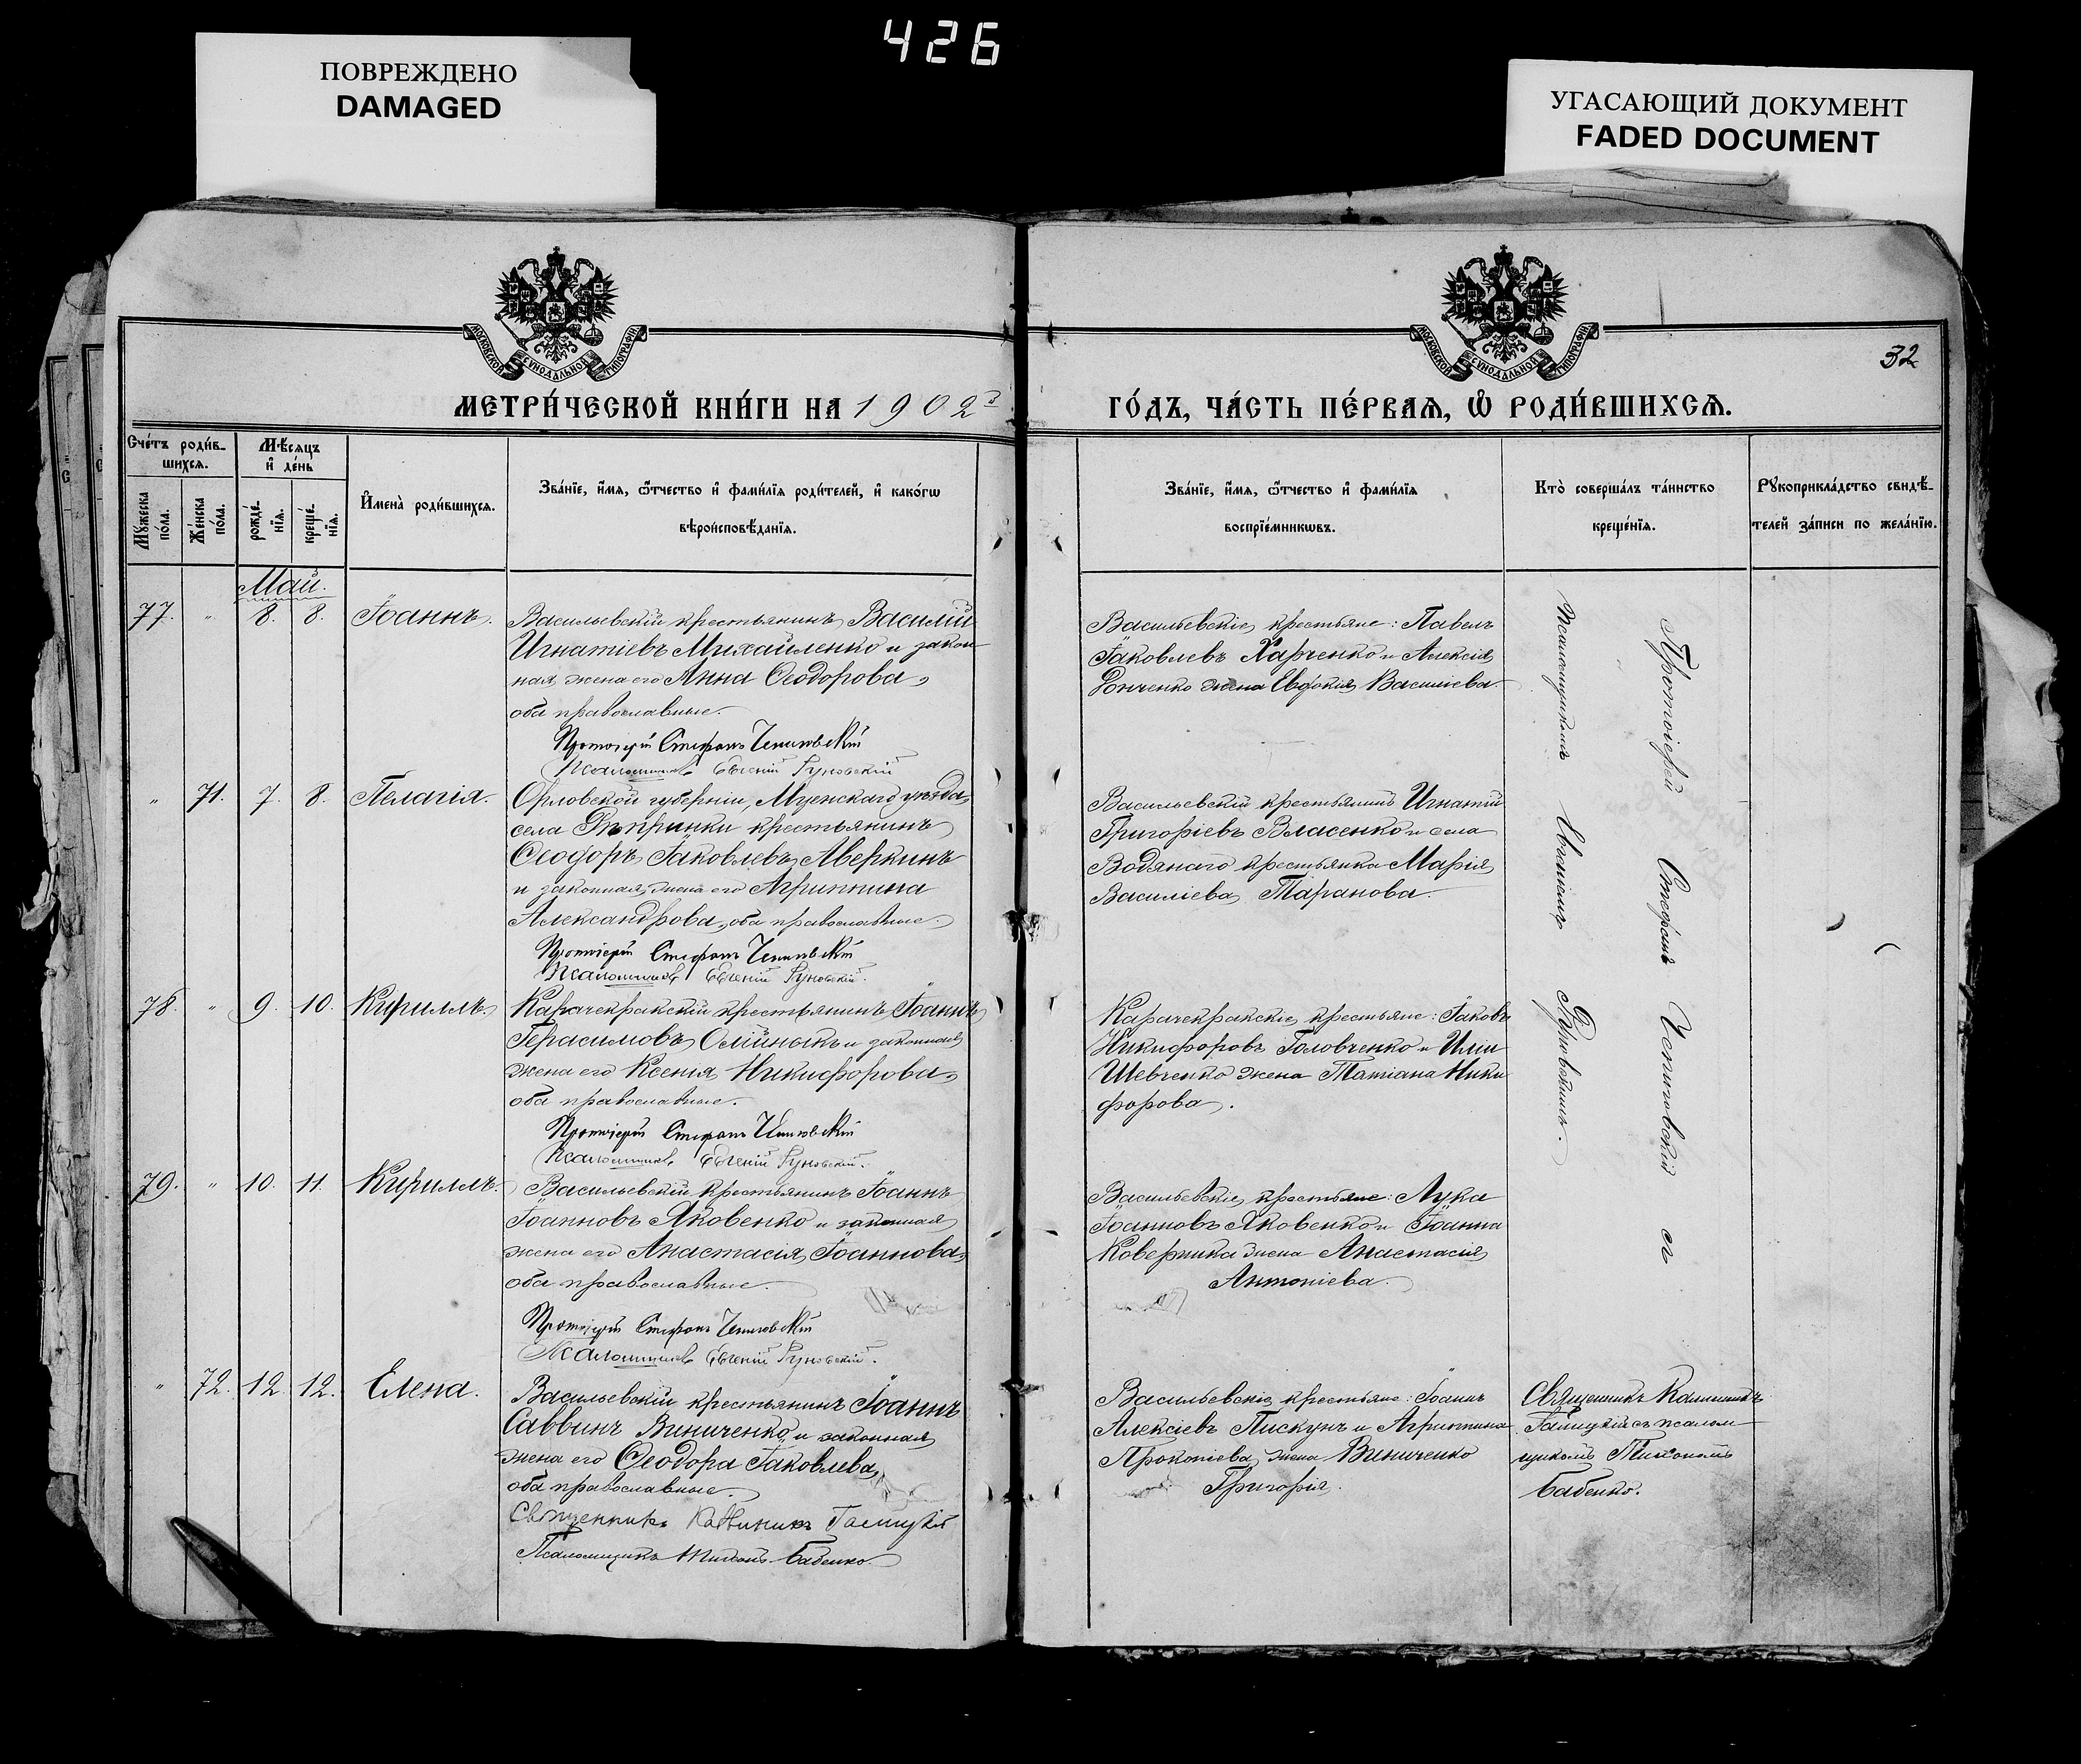 426
ПОВРЕЖДЕНО
DAMAGED
УГАСАЮЩИЙ ДОКУМЕНТ
FADED DOCUMENT
МОСКОВСКОЙ СѴНОДАЛЬНОЙ ТИПОГРАФІИ
МОСКОВСКОЙ СѴНОДАЛЬНОЙ ТИПОГРАФІИ
32
МЕТРИ́ЧЕСКОЙ КНИ́ГИ НА 1902й
ГО́ДЪ, ЧА́СТЬ ПЕ́РВАѦ, Ѡ҆ РОДИ́ВШИХСѦ.
Сче́тъ роди́в-
шихсѧ.
Мѣ́сѧцъ
и҆ де́нь
Мꙋжеска по́ла.
Же́нска по́ла.
рожде́-
нїѧ.
креще́-
нїѧ.
И҆мена̀ роди́вшихсѧ.
Зва́нїе, и҆́мѧ, ѻ҆́тчество и҆ фами́лїѧ роди́телей, и҆ како́гѡ
вѣроисповѣ́данїѧ.
Зва́нїе, и҆́мѧ, ѻ҆́тчество и҆ фами́лїѧ
воспрїе́мникѡвъ.
Кто̀ соверша́лъ та́инство
креще́нїѧ.
Рꙋкоприкла́дство свидѣ́-
телей за́писи по жела́нїю.
Май.
77. " 8. 8. Іоаннъ.
Васильевскій крестьянинъ Василій
Игнатіевъ Михайленко и закон-
ная жена его Анна Ѳеодорова,
оба православные.
Протоіерей Стефанъ
Псаломщикъ Евгеній Руновскій
Васильевскіе крестьяне: Павелъ
Іаковлевъ Харченко и Алексія
Гонченко жена Евдокія Василіева.
Протоіерей Стефанъ съ
Псаломщикомъ Евгеніемъ Руновскимъ.
" 71. 7. 8. Пелагія.
Орловской губерніи, Мценскаго уѣзда,
села крестьянинъ
Ѳеодоръ Іаковлевъ Аверкинъ
и законная жена его Агриппина
Александрова, оба православные.
Протоіерей Стефанъ
Псаломщикъ Евгеній Руновскій.
Васильевскій крестьянинъ Игнатій
Григоріевъ Власенко и села
Водянаго крестьянка Марія
Василіева Таранова.
78. " 9. 10. Кириллъ.
Карачекракскій крестьянинъ Іоаннъ
Герасимовъ Олійныкъ и законная
жена его Ксенія Никифорова,
оба православные.
Протоіерей Стефанъ
Псаломщикъ Евгеній Руновскій.
Карачекракскіе крестьяне: Іаковъ
Никифоровъ Головченко и Иліи
Шевченко жена Татіана Ники-
форова.
79. " 10. 11. Кириллъ.
Васильевскій крестьянинъ Іоаннъ
Іоанновъ Яковенко и законная
жена его Анастасія Іоаннова,
оба православные.
Протоіерей Стефанъ
Псаломщикъ Евгеній Руновскій.
Васильевскіе крестьяне: Лука
Іоанновъ Яковенко и Іоанна
Коверника жена Анастасія
Антоніева.
" 72. 12. 12. Елена.
Васильевскій крестьянинъ Іоаннъ
Саввинъ Виниченко и законная
жена его Ѳеодора Іаковлева,
оба православные.
Священникъ Каллиникъ Галицкій
Псаломщикъ Тихонъ Бабенко.
Васильевскіе крестьяне: Іоаннъ
Алексіевъ Пискунъ и Агриппина
Прокопіева жена Виниченко
Григорія.
Священникъ Каллиникъ
Галицкій съ псалом-
щикомъ Тихономъ
Бабенко.